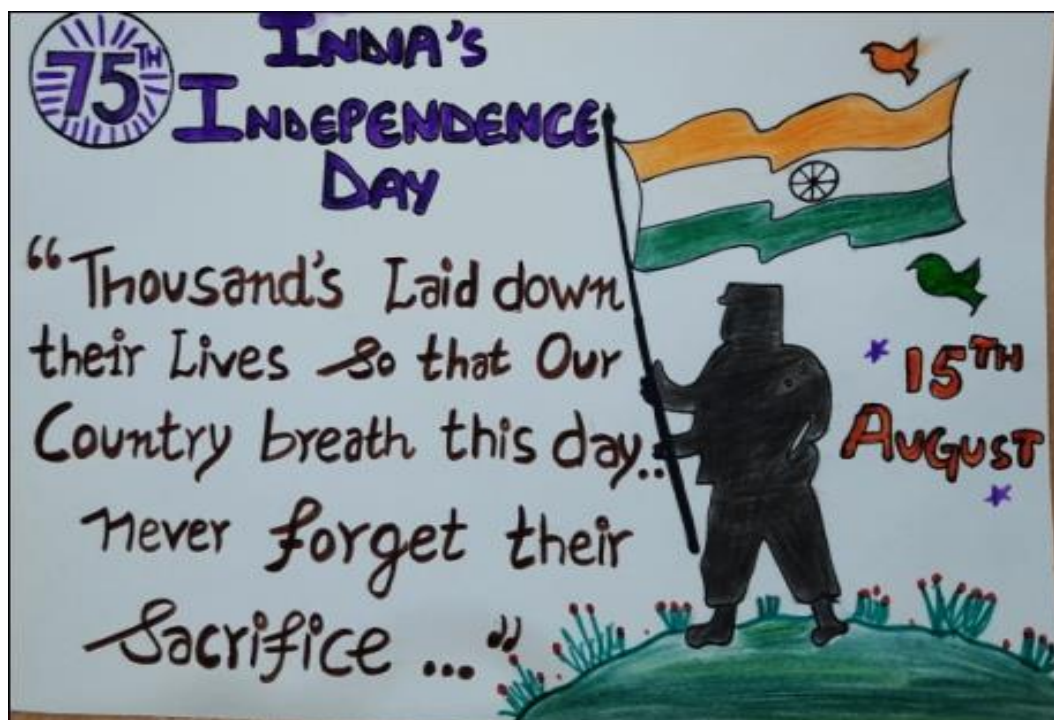 75TH
INDIA'S
INDEPENDENCE
DAY
"Thousand's Laid down
their Lives So that Our
Country breath this day..
never forget their
Sacrifice ..."
15TH
AUGUST